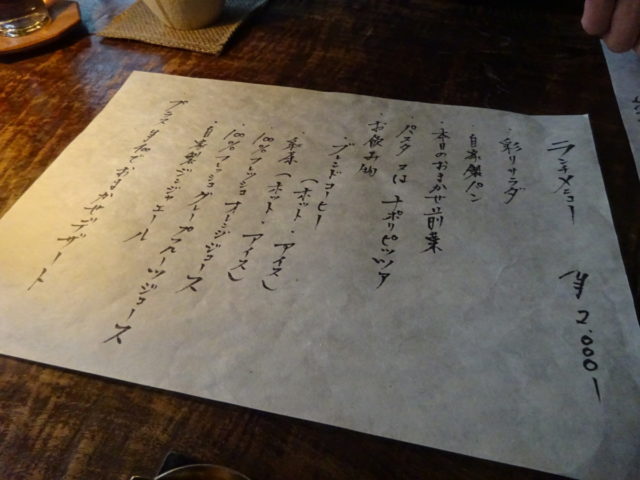 ランチメニュー ¥2.000ー
・彩りサラダ
自家製パン
・本日のおまかせ前菜
・パスタ又は ナポリピッツァ
・お飲み物
・ブレンドコーヒー
(ホット・アイス)
紅茶(ホット・アイス)
100%フレッシュオレンジジュース
100%フレッシュグレープフルーツジュース
自家製ジンジャエール
プラス¥ でおまかせデザート